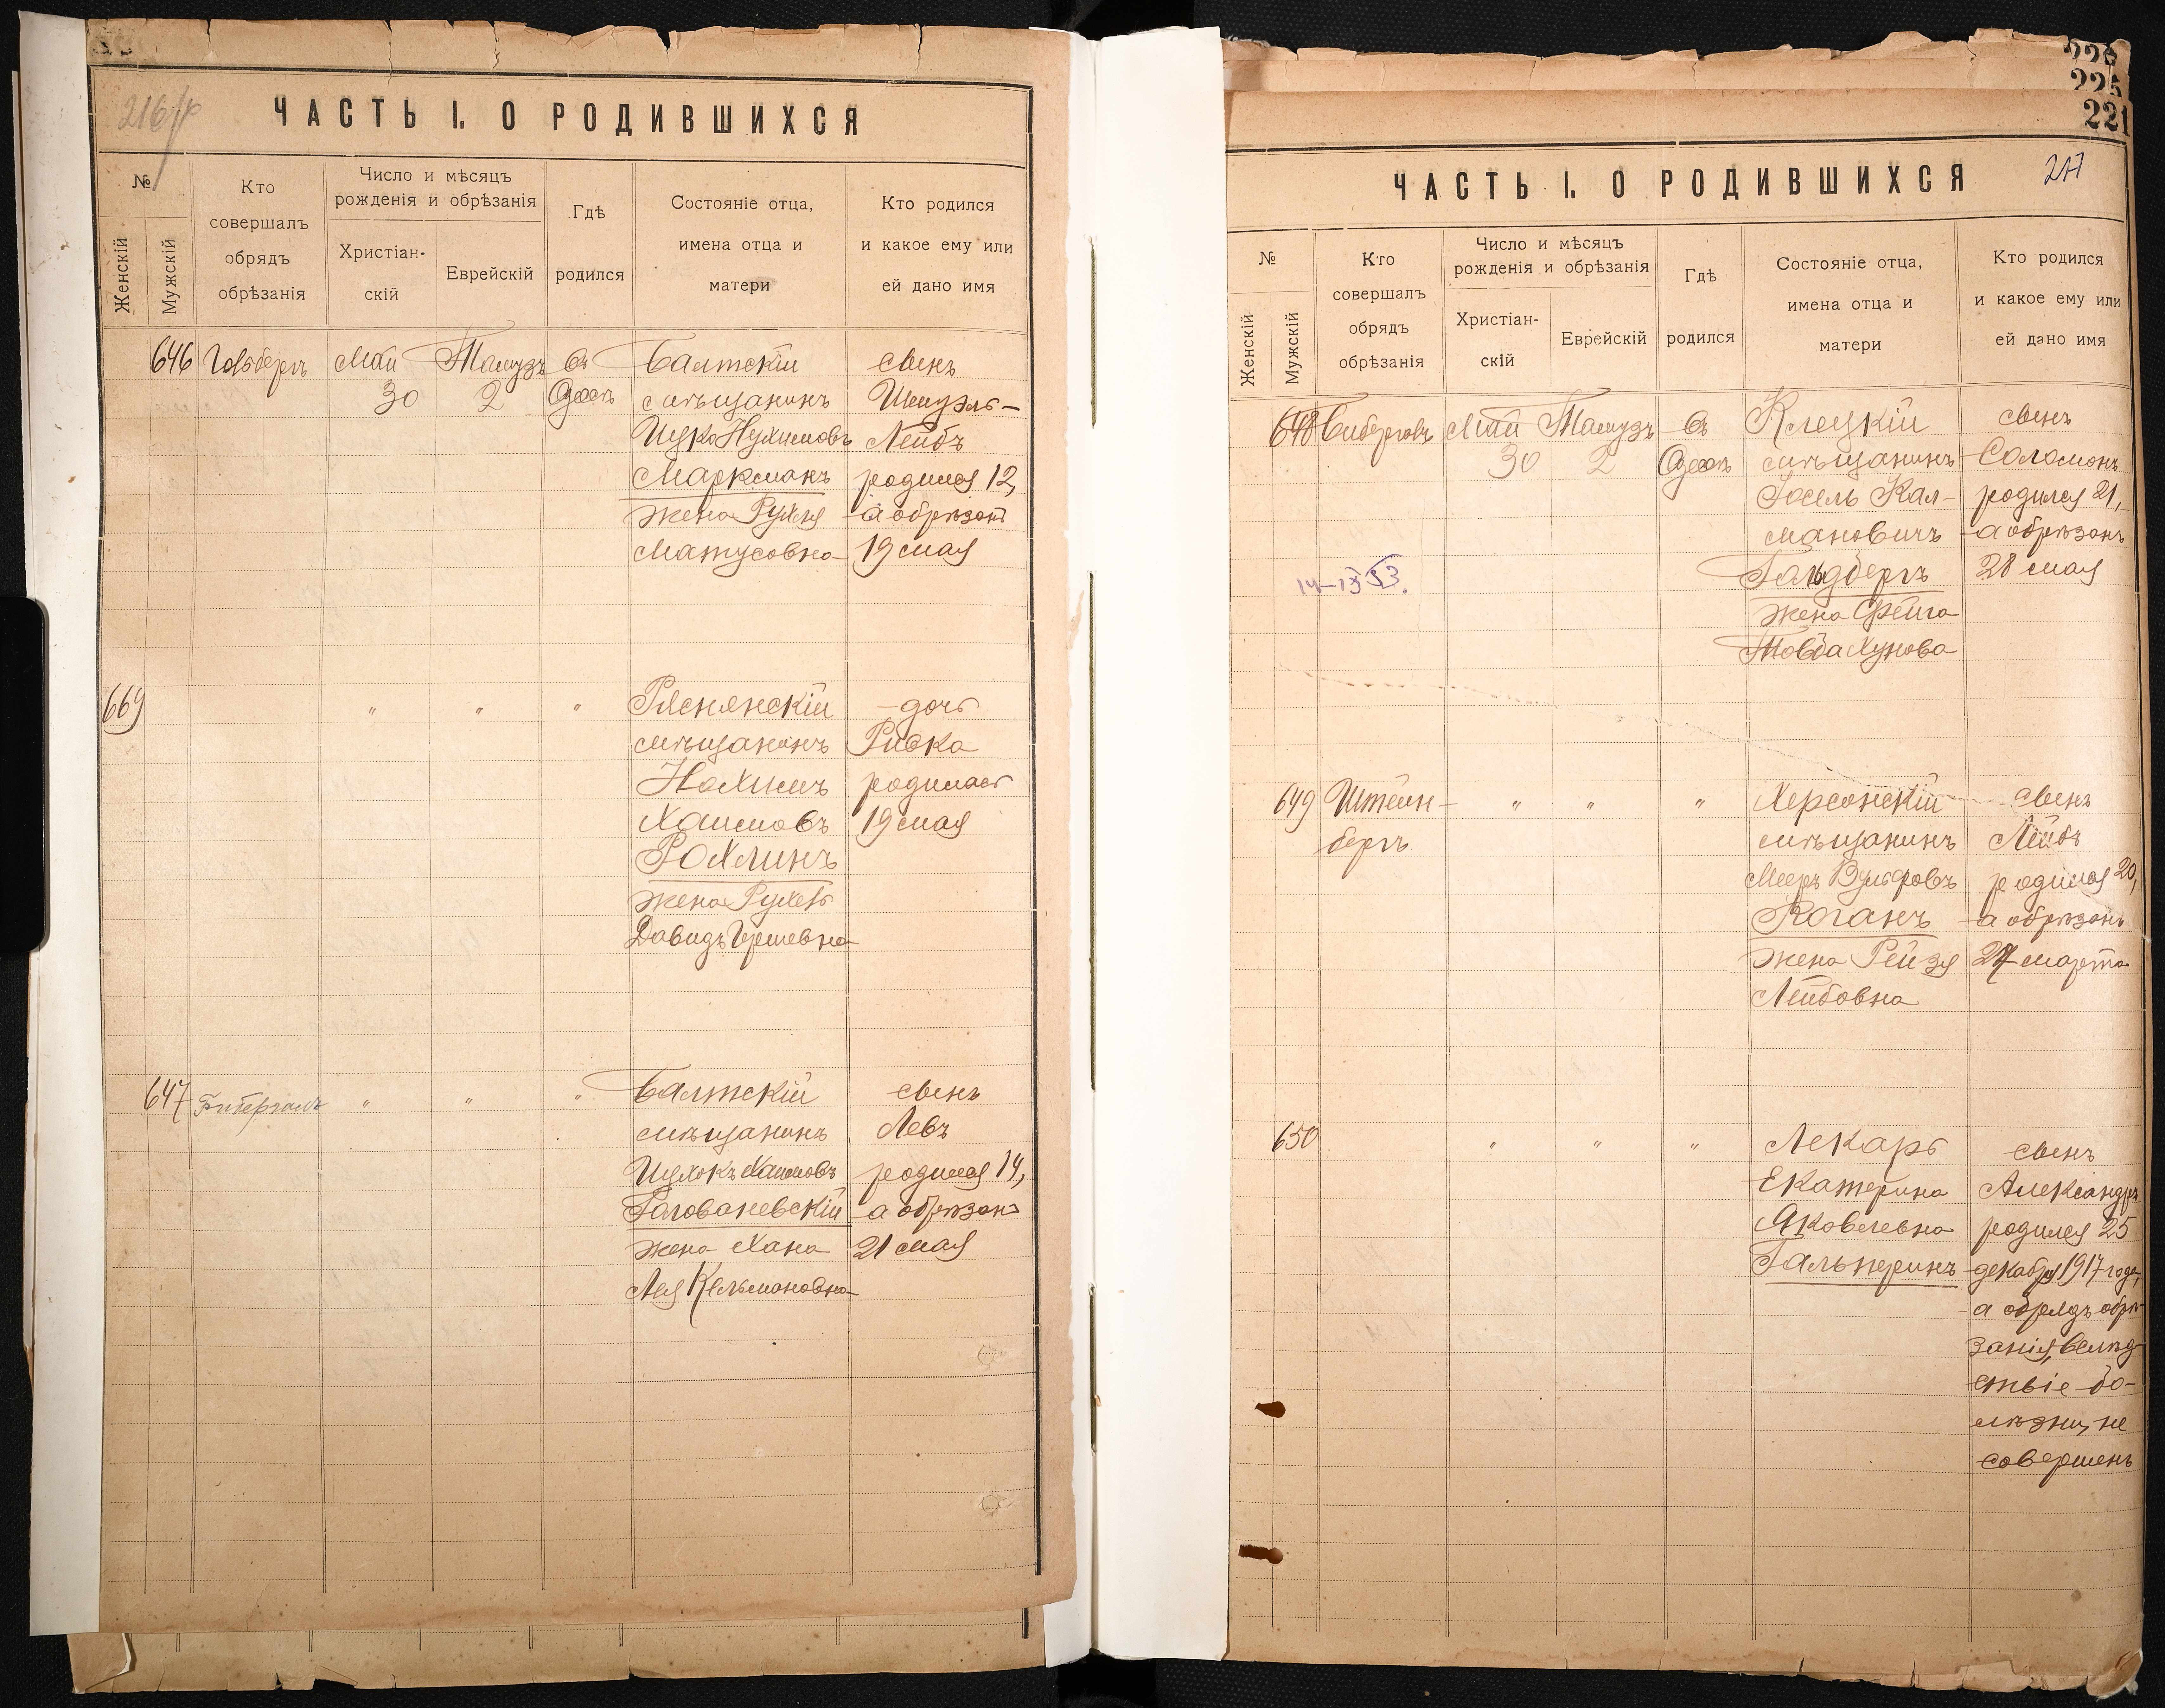 216/р
ЧАСТЬ I. О РОДИВШИХСЯ
№
Женскій
Мужскій
Кто совершалъ обрядъ обрѣзанія
Число и мѣсяцъ рожденія и обрѣзанія
Христіан-скій
Еврейскій
Гдѣ родился
Состояніе отца, имена отца и матери
Кто родился и какое ему или ей дано имя
646 Гольбергъ Май Тамузъ въ Балтскій сынъ
30 2 Одессѣ мѣщанинъ Шмуэль-
Ицко Нухимовъ Лейбъ
Маркманъ родился 12,
жена Рухля а обрѣзанъ
Матусовна 19 мая
669 " " " Ряснянскій дочь
мѣщанинъ Ривка
Нахимъ родилась
Хаимовъ 19 мая
Рохлинъ
жена Рухель
Давидъ Гершевна
647 " " " Балтскій сынъ
мѣщанинъ Левъ
Ицхокъ Хаимовъ родился 14,
Голованевскій а обрѣзанъ
жена Хана 21 мая
Лея Кельмановна
225
221
217
ЧАСТЬ I. О РОДИВШИХСЯ
№
Женскій
Мужскій
Кто совершалъ обрядъ обрѣзанія
Число и мѣсяцъ рожденія и обрѣзанія
Христіан-скій
Еврейскій
Гдѣ родился
Состояніе отца, имена отца и матери
Кто родился и какое ему или ей дано имя
648 Май Тамузъ въ Клецкій сынъ
30 2 Одессѣ мѣщанинъ Соломонъ
Іосель Кал- родился 21,
мановичъ а обрѣзанъ
Гольдбергъ 28 мая
жена Фейга
Товба Хунова
649 Штейн- " " " Херсонскій сынъ
бергъ мѣщанинъ Лейбъ
Мееръ Вульфовъ родился 20,
Коганъ а обрѣзанъ
жена Рейзя 27 марта
Лейбовна
650 " " " Лекарь сынъ
Екатерина Александръ
Яковлевна родился 25
Гальперинъ декабря 1917 года,
а обрядъ обрѣ-
занія, вслѣд-
ствіе бо-
лѣзни, не
совершенъ